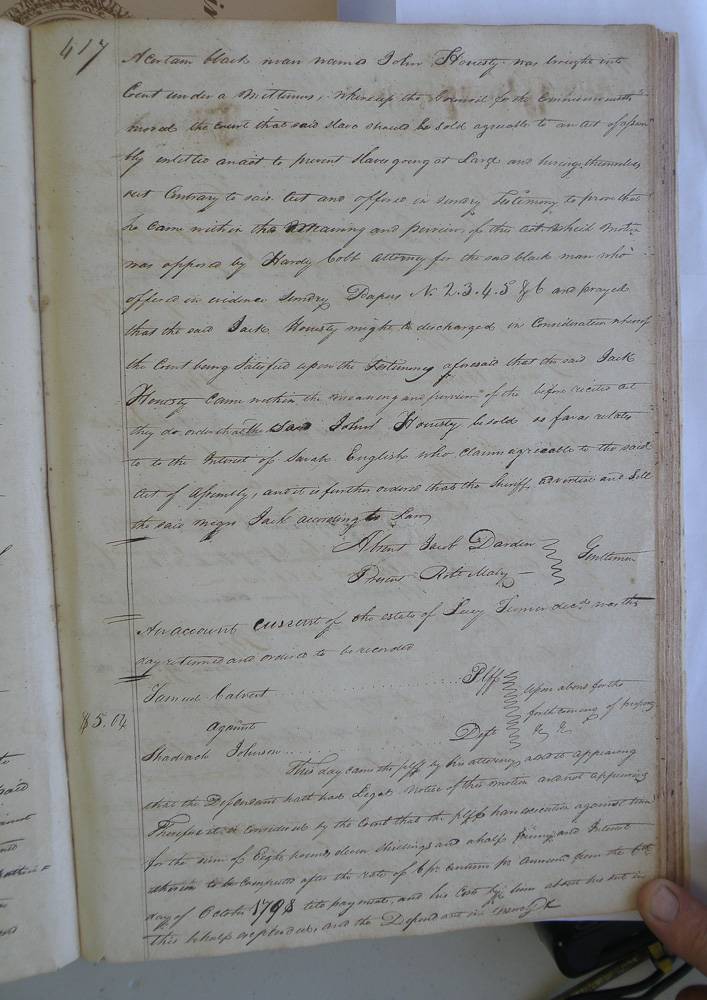 417
A Certain black man name John Honesty was brought into
Court under a Mittimus, whereup the Council for the Commonwealth
moved the Court that said slave should be sold agreeable to an act of assem
bly entitled an act to prevent Slaves going at Large and hiring themselves
out Contrary to said Act and offered in sundry Testimony to prove that
he Came within the Meaning and purview of this act which motion
was opposed by Hardy Cobb Attorney for the said black man who
offered in evidence Sundry Papers No. 2.3.4.5 & 6 and prayed
that the said Jack Honesty might be discharged in Consideration whereof
the Court being Satisfied upon the Testimony aforesaid that the said Jack
Honesty Came within the meaning and purview of the before recited act
they do order that the said John Honesty be sold so far as relates
to to the Interest of Sarah English who Claim agreeable to the said
Act of Assembly, and it is further ordered that the Sheriff advertise and Sell
the said negro Jack according to Law
Absent Jacob Darden
Gentlemen
Present Robt Mabry
An account Current of the estate of Lucy Turner decd. was this
day returned and ordered to be recorded
Samuel Calvert Plff
Upon a bond for the
forth coming of property
$5.04
against
&c
Shadrach Johnson Deft
This day came the plff by his attorney and it appearing
that the Defendant hath had Legal Notice of this motion and not appearing
Therefore it is Considered by the Court that the plff have execution against him
for the sum of Eight pounds eleven shillings and a half penny and Interest
thereon to be computed after the rate of 6 pr. Centum pr annum from the 6th
day of October 1798 till payment, and his Costs by him about his suit in
this behalf expended, and the Defendant in mercy &c